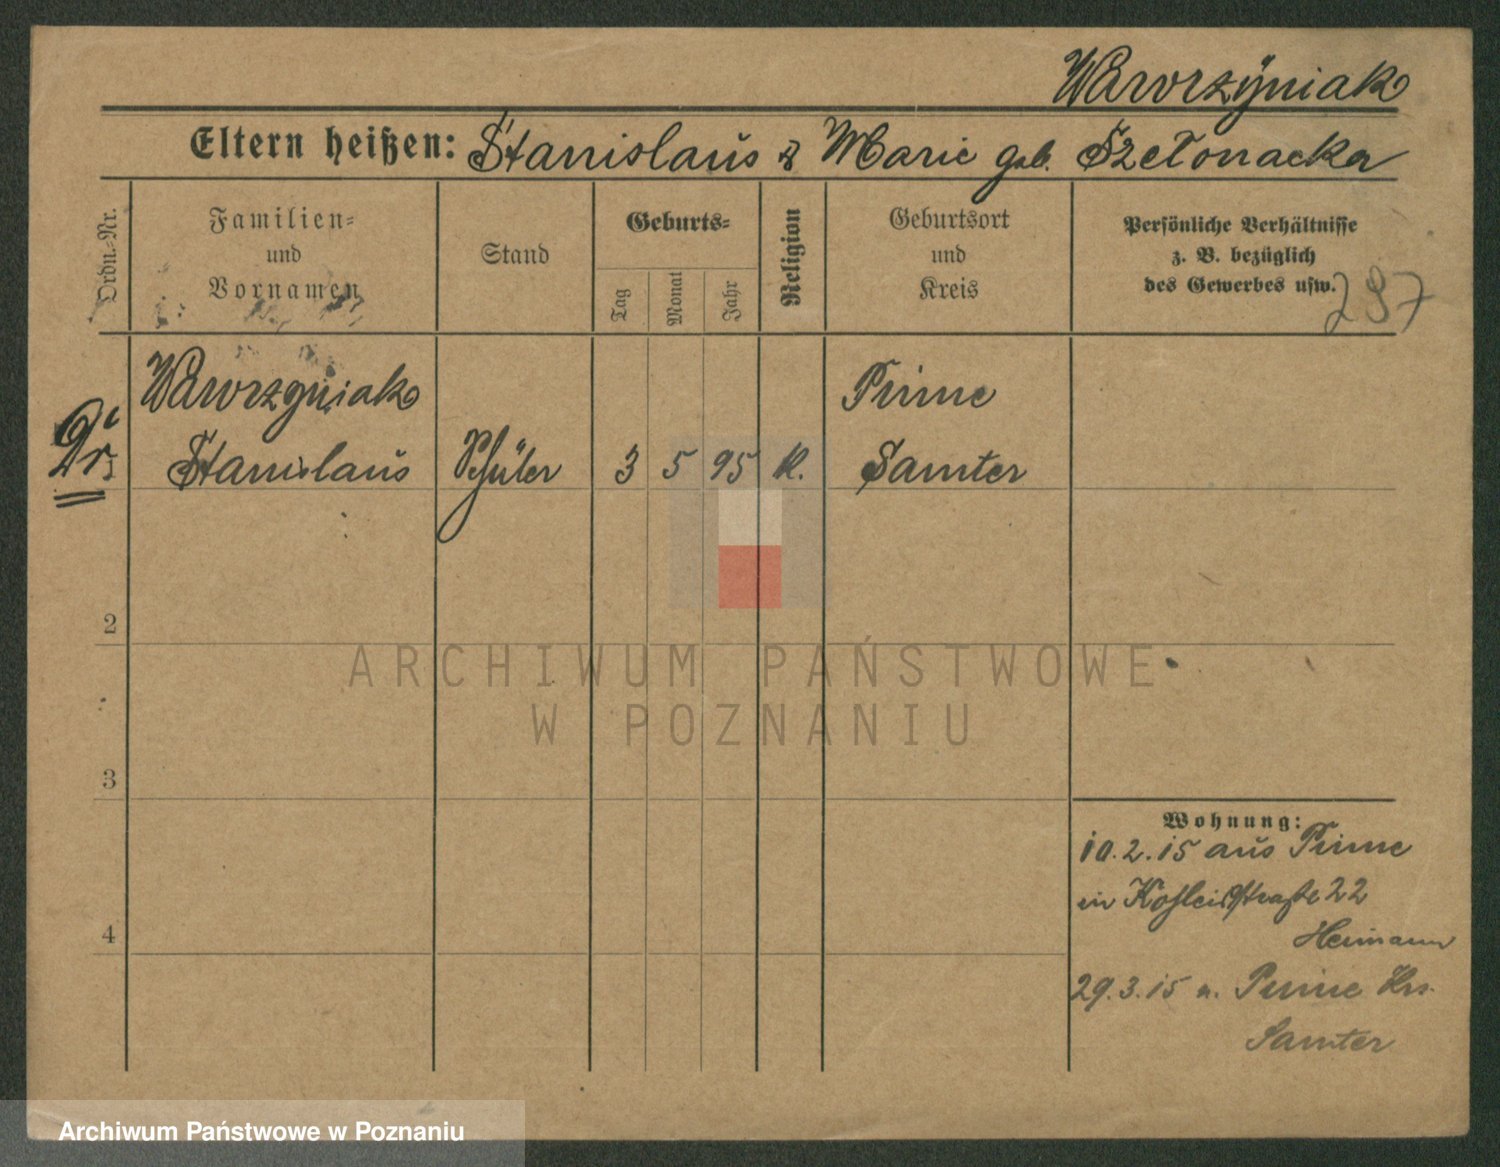 Wawrzÿniak
Eltern heißen: Stanislaus & Marie geb.
Ordn.-Nr.
Familien=
und
Vornamen
Stand
Geburts=
Tag
Monat
Jahr
Religion
Geburtsort
und
Kreis
Persönliche Verhältnisse
z. B. bezüglich
des Gewerbes usw.
Wawrzyniak
Stanislaus
Schüler
3 5 95 K.
Samter
2
3
4
Wohnung:
10.2.15 aus
in 22
29.3.15 n. Krs.
Samter
ARCHIWUM PAŃSTWOWE
W POZNANIU
Archiwum Państwowe w Poznaniu